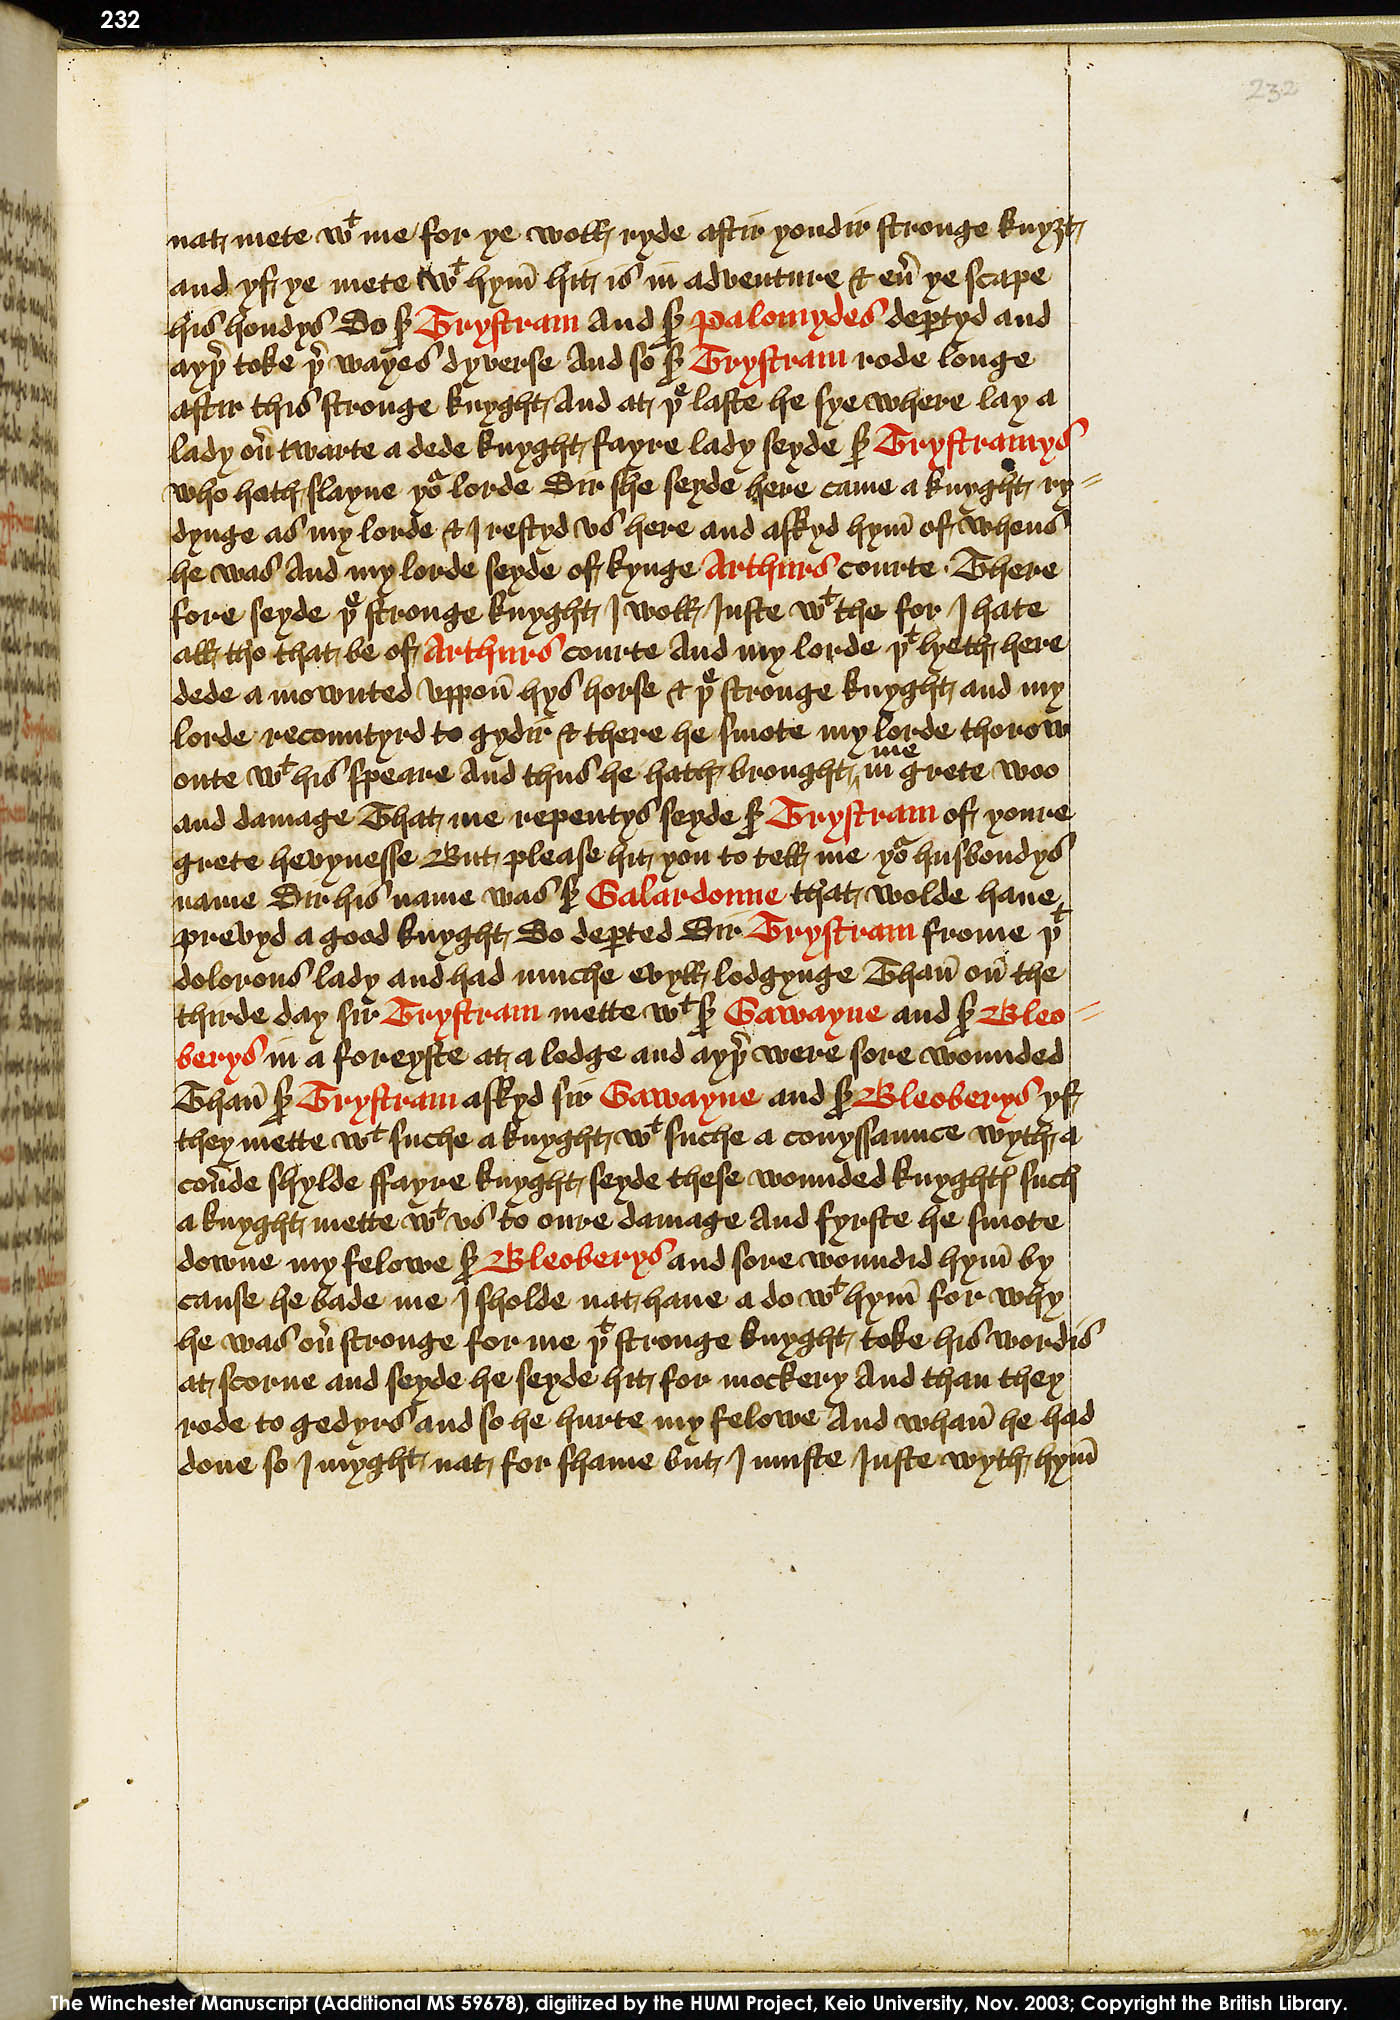 232
232
nat mete wᵗ me for ye woll ryde aftir yondir stronge knyȝt
and yf ye mete wᵗ hym̄ hit is in adventure & eu̾ ye scape
his hondys So sʳ Trystram And sʳ Palomydes deꝑtyd and
ayþʳ toke þʳ wayes dyverse And so sʳ Trystram rode longe
aftir this stronge knyght And at þᵉ laste he sye where lay a
lady ou̾twarte a dede knyght fayre lady seyde sʳ Trystramys
who hath slayne yoʳ lorde Sir she seyde here came a knyght ry=
dynge as my lorde & I restyd vs here and askyd hym̄ of whens
he was And my lorde seyde of kynge Arthurs courte · There
fore seyde þᵉ stronge knyght I woll Iuste wᵗ the for I hate
all tho that be of Arthurs courte And my lorde þᵗ lyeth here
dede a mownted vppon̄ hys horse & þᵉ stronge knyght and my
lorde recountyrd to gydir & there he smote my lorde thorow
oute wᵗ his speare And thus he hath brought me in grete woo
and damage That me repentys seyde sʳ Trystram of youre
grete hevynesse But please hit you to tell me yoʳ husbondys
name Sir his name was sʳ Galardonne that wolde haue
prevyd a good knyght So deꝑted Sir Trystram frome þᵗ
dolorous lady and had muche evyll lodgynge Than̄ on̄ the
thirde day sir Trystram mette wᵗ sʳ Gawayne and sʳ Bleo=
berys in a foreyste at a lodge and ayþʳ were sore wounded
Than̄ sʳ Trystram askyd sir Gawayne and sʳ Bleoberys yf
they mette wᵗ suche a knyght wᵗ suche a conyssaunce wyth a
cou̾de shylde ffayre knyght seyde these wounded knyghtꝭ such
a knyght mette wᵗ vs to oure damage And fyrste he smote
downe my felowe sʳ Bleoberys and sore woundid hym̄ by
cause he bade me I sholde nat haue a do wᵗ hym̄ for why
he was ou̾ stronge for me þᵗ stronge knyght toke his wordis
at scorne and seyde he seyde hit for mockery And than they
rode to gedyrs and so he hurte my felowe And whan̄ he had
done so I myght nat for shame but I muste Iuste wyth hym̄
The Winchester Manuscript (Additional MS 59678), digitized by the HUMI Project, Keio University, Nov. 2003; Copyright the British Library.